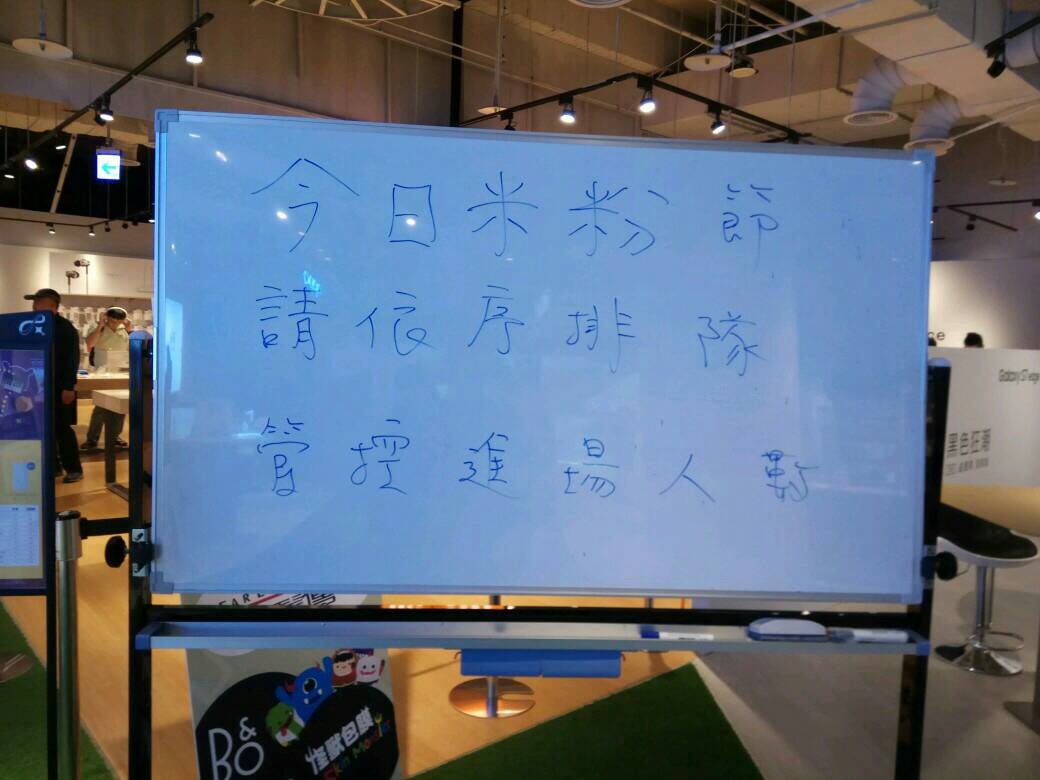 今日米粉節
請依序排隊
管控進場人數
Galaxy S7 edge
黑色狂潮
B&O
怪獸包膜